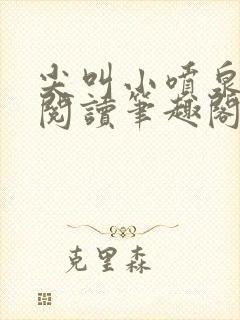 尖叫小噴泉
閱讀筆趣閣
克里森